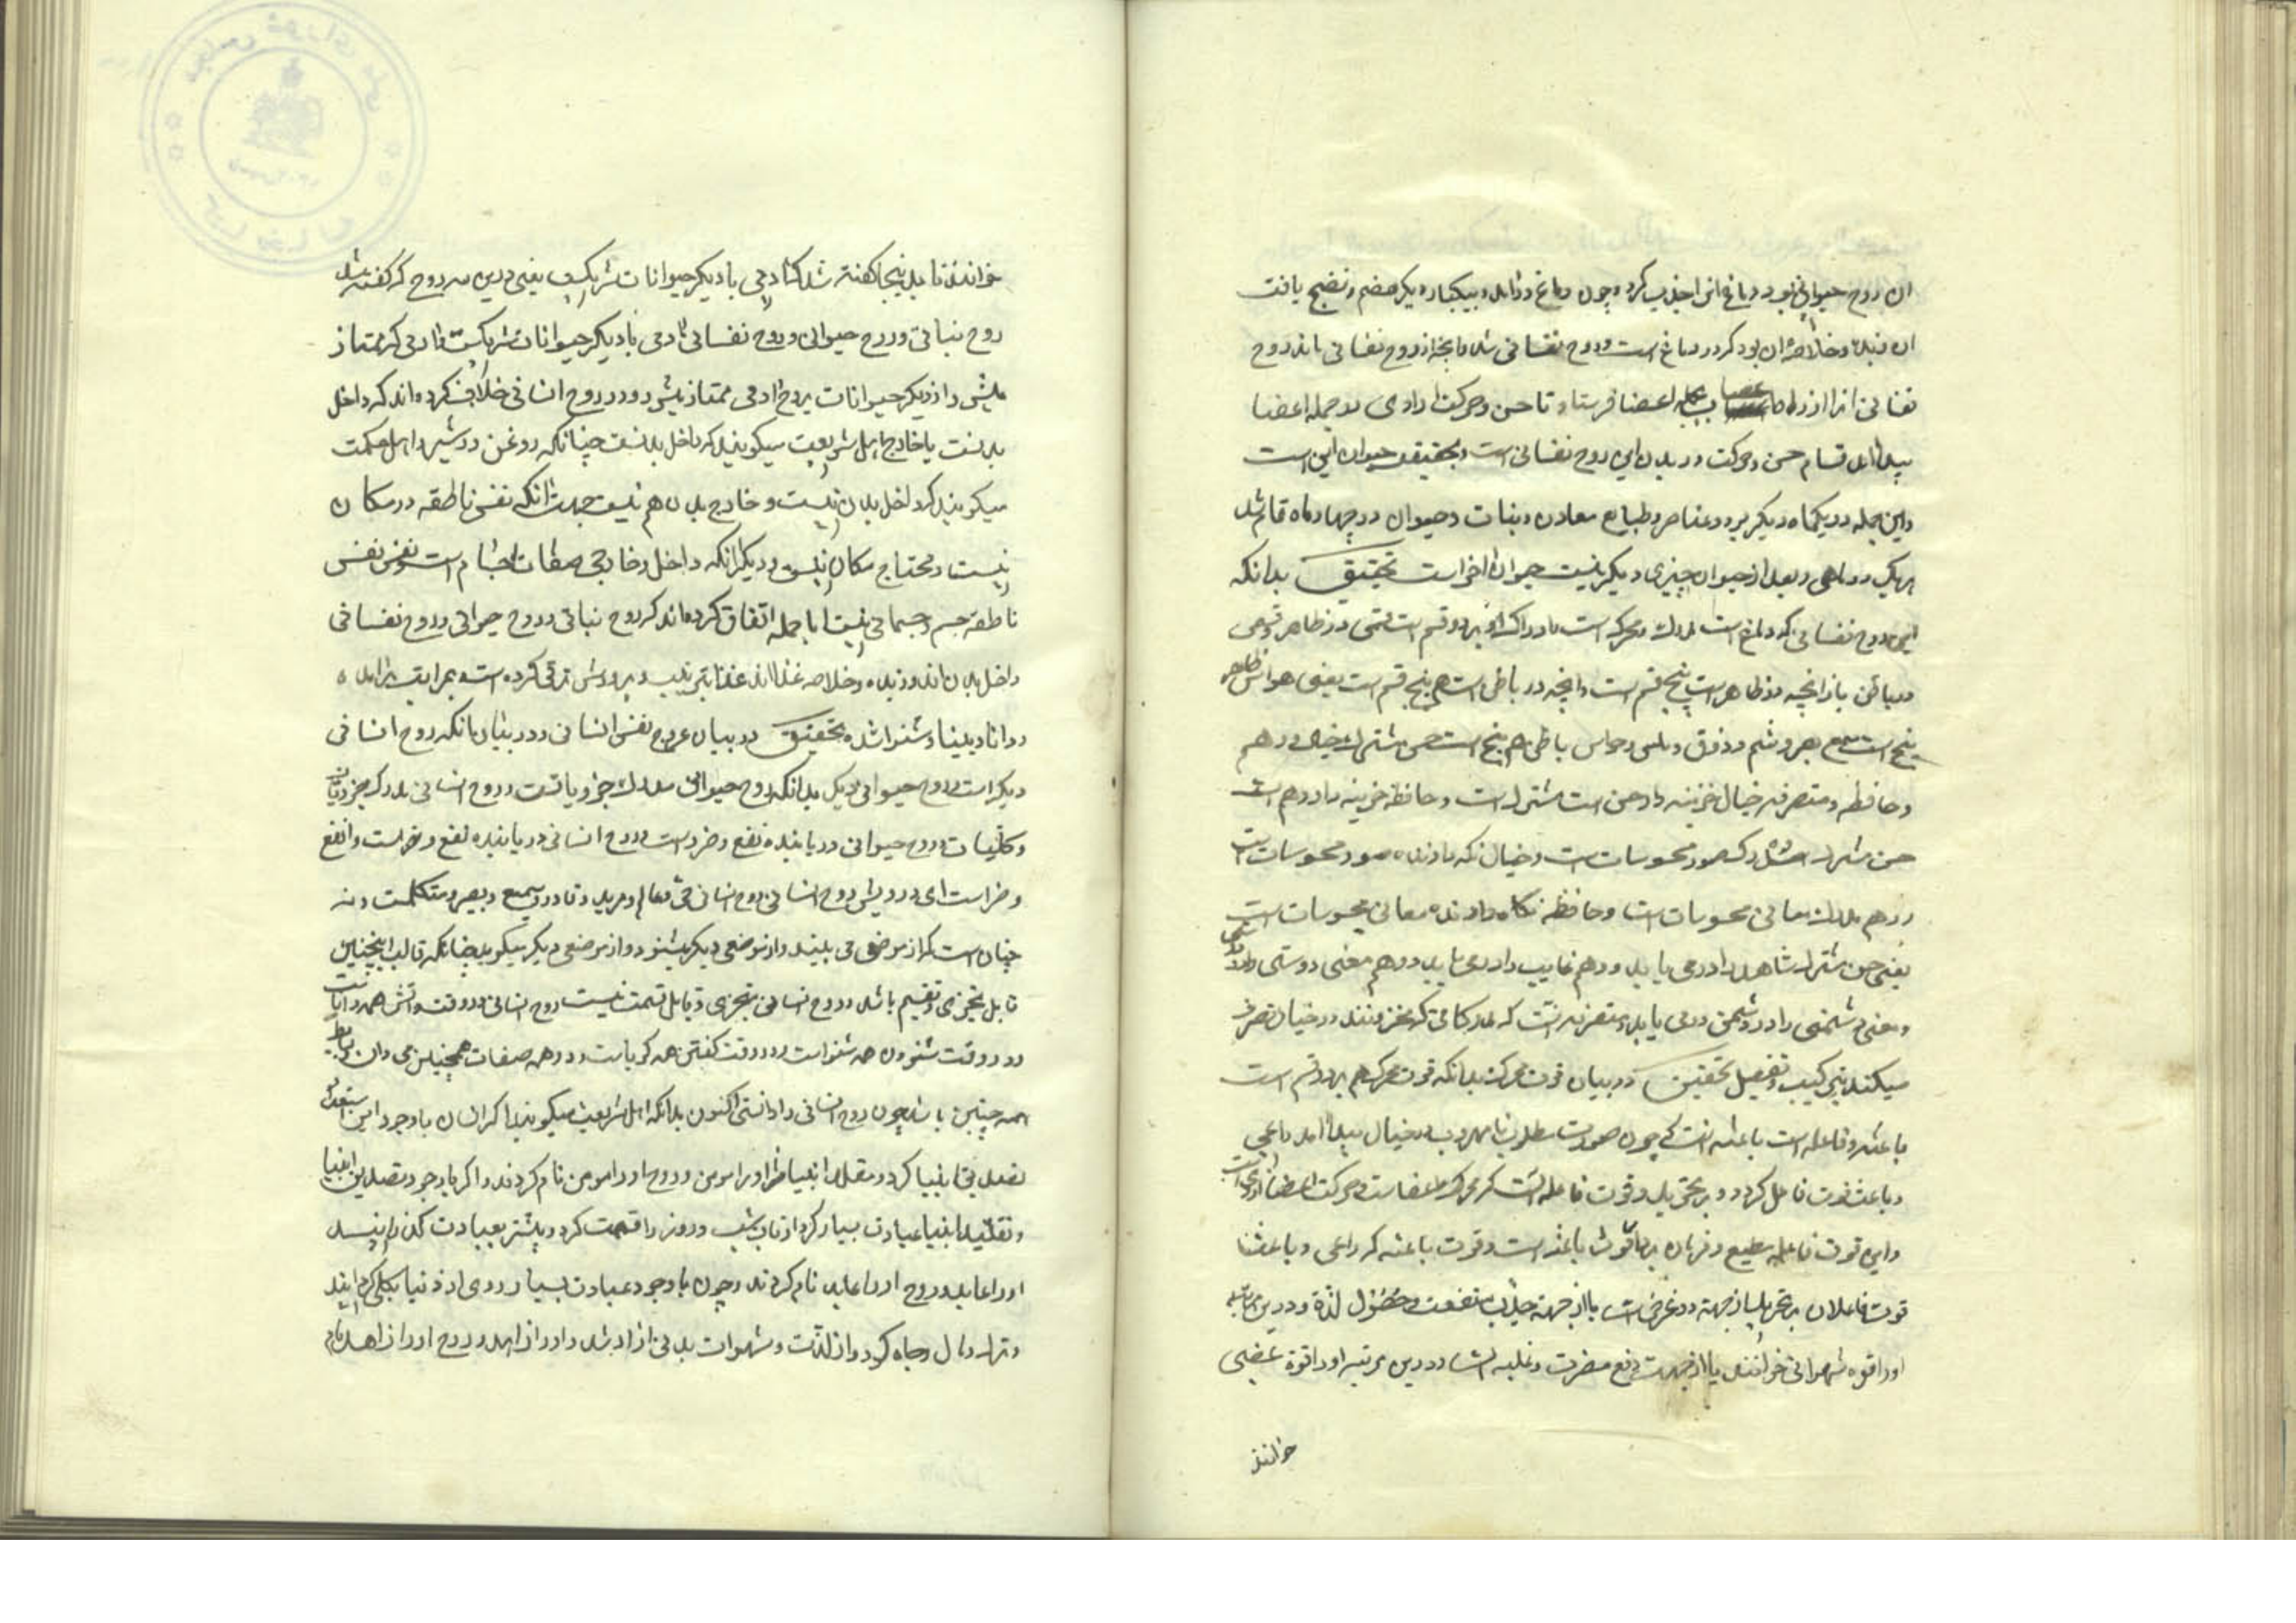 ان روح حیوانی بود دماغ انرا جذب کرد و چون دماغ درامد و بیکبار دیکر هضم و نضج یافت
ان زبده و خلاصه ان بود که در دماغ است و روح نفسانی شد و انچه از روح نفسانی ماند روح
نفسانی انرا از راه اعصاب بجمله اعضا فرستاد تا حس و حرکت ارادی در جمله اعضا
پیدا امد قسام حس و حرکت در بدن این روح نفسانی است و حقیقت حیوان این است
و این جمله در یکماه دیکر بود عناصر و طبایع معادن و نبات و حیوان در چهار ماه تمام شد
هریک در ماهی و بعد از حیوان چیزی دیکر نیست حیوان اخر است تحقیق بدانکه
این روح نفسانی که در دماغ است مدرک و محرکه است و ادراک او بر دو قسم است قسمی در ظاهر و قسمی
در باطن باز انچه در ظاهر است پنج قسم است و انچه در باطن است هم پنج قسم است یعنی حواس ظاهر
پنج است سمع و بصر و شم و ذوق و لمس و حواس باطن هم پنج است حس مشترک و خیال و وهم
و حافظه و متصرفه خیال خزینه دار حس مشترک است و حافظه خزینه دار وهم است
حس مشترک مدرک صور محسوسات است و خیال نکه دارنده صور محسوسات است
و وهم مدرک معانی محسوسات است و حافظه نکاه دارنده معانی محسوسات است
یعنی حس مشترک شاهد را در می یابد و وهم غایب را در می یابد و وهم معنی دوستی را در
و معنی دشمنی را در دشمن در می یابد و متصرفه انست که مدرکاتی که مخزونند در خیال تصرف
میکند بترکیب و تفصیل تحقیق در بیان قوت محرکه بدانکه قوت محرکه هم بر دو قسم است
باعثه و فاعله است باعثه انست که چون صورت مطلوب یا مهروب در خیال پیدا اید داعی
و باعث قوت فاعله کردد بر تحریک و قوت فاعله انست که محرک اعضاست و حرکت اعضا از وی است
و این قوت فاعله مطیع و فرمان بردار قوت باعثه است و قوت باعثه که داعی و باعث
قوت فاعله است بر تحریک از جهت دو غرض است یا از جهت جذب منفعت و حصول لذة و درین مرتبه
او را قوه شهوانی خوانند یا از جهت دفع مضرت و غلبه است و درین مرتبه او را قوة غضبی
خوانند
خوانند تا بدینجا کفته شد که ادمی با دیکر حیوانات شریکست یعنی درین سه روح که کفته شد
روح نباتی و روح حیوانی و روح نفسانی ادمی با دیکر حیوانات شریکست و ادمی که ممتاز
میشود از دیکر حیوانات بروح ادمی ممتاز میشود و در روح انسانی خلاف کرده اند که داخل
بدنست یا خارج اهل شریعت میکویند که داخل بدنست چنانکه روغن در شیر و اهل حکمت
میکویند که داخل بدن نیست و خارج بدن هم نیست جهت انکه نفس ناطقه در مکان
نیست و محتاج مکان نیست و دیکر انکه داخل و خارجی صفات اجسام است و نفس
ناطقه جسم و جسمانی نیست اما جمله اتفاق کرده اند که روح نباتی و روح حیوانی و روح نفسانی
داخل بدن اند و زبده و خلاصه غذا اند غذا بتربیت و پرورش ترقی کرده است و بمراتب برامده
و دانا و بینا و شنوا شده تحقیق در بیان عروج نفس انسانی و در بیان انکه روح انسانی
دیکر است و روح حیوانی دیکر بدانکه روح حیوانی مدرک جزویاتست و روح انسانی مدرک جزویات
و کلیات و روح حیوانی دریابنده نفع و ضر است و روح انسانی دریابنده نفع و ضر است و انفع
و اضر است ای درویش روح انسانی حی و عالم و مرید و قادر و سمیع و بصیر و متکلمست و نه
چنان است که از موضعی می بیند و از موضعی دیکر میشنود و از موضعی دیکر میکوید چنانکه قالب اینچنین
قابل تجزی و تقسیم باشد و روح انسانی متجزی و قابل قسمت نیست روح انسانی در وقت دانش همه داناست
و در وقت شنودن همه شنواست و در وقت کفتن همه کویاست و در همه صفات همچنین می دان
همه چنین باشد چون روح انسانی را دانستی اکنون بدانکه اهل شریعت میکویند اکر انسان با وجود این استعداد
تصدیق انبیا کرد و مقلد انبیا شد او را مومن و روح او را مومن نام کردند و اکر با وجود تصدیق انبیا
و تقلید انبیا عبادت بسیار کرد و اوقات شب و روز را قسمت کرد و بیشتر بعبادت کذرانید
او را عابد و روح او را عابد نام کردند و چون با وجود عبادت بسیار روی از دنیا بکلی کردانید
و ترک مال و جاه کرد و از لذت و شهوات بدنی ازاد شد او را زاهد و روح او را زاهد نام